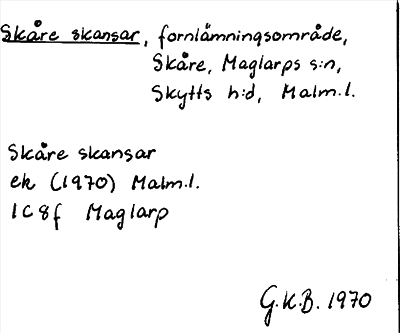 Skåre skansar, fornlämningsområde,
Skåre, Maglarps s:n,
Skytts h:d, Malm.l.
Skåre skansar
ek (1970) Malm.l.
1C8f Maglarp
G.K.B. 1970